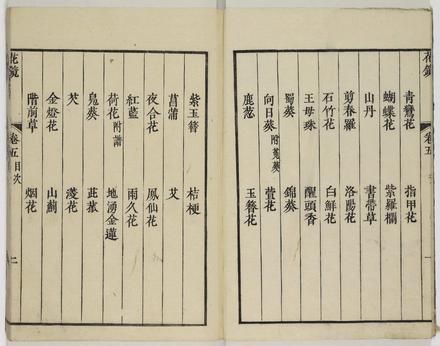 花鏡 卷五 一
青鸞花 指甲花
蝴蝶花 紫羅欄
山丹 書帶草
剪春羅 洛陽花
石竹花 白鮮花
王母珠 醒頭香
蜀葵 錦葵
向日葵 萱花
鹿葱 玉簪花
紫玉簪 桔梗
菖蒲 艾
夜合花 鳳仙花
紅藍 雨久花
荷花 附譜 地湧金蓮
鳧葵 茈菰
芡 淩花
金燈花 山薊
階前草 烟花
花鏡 卷五目次 二